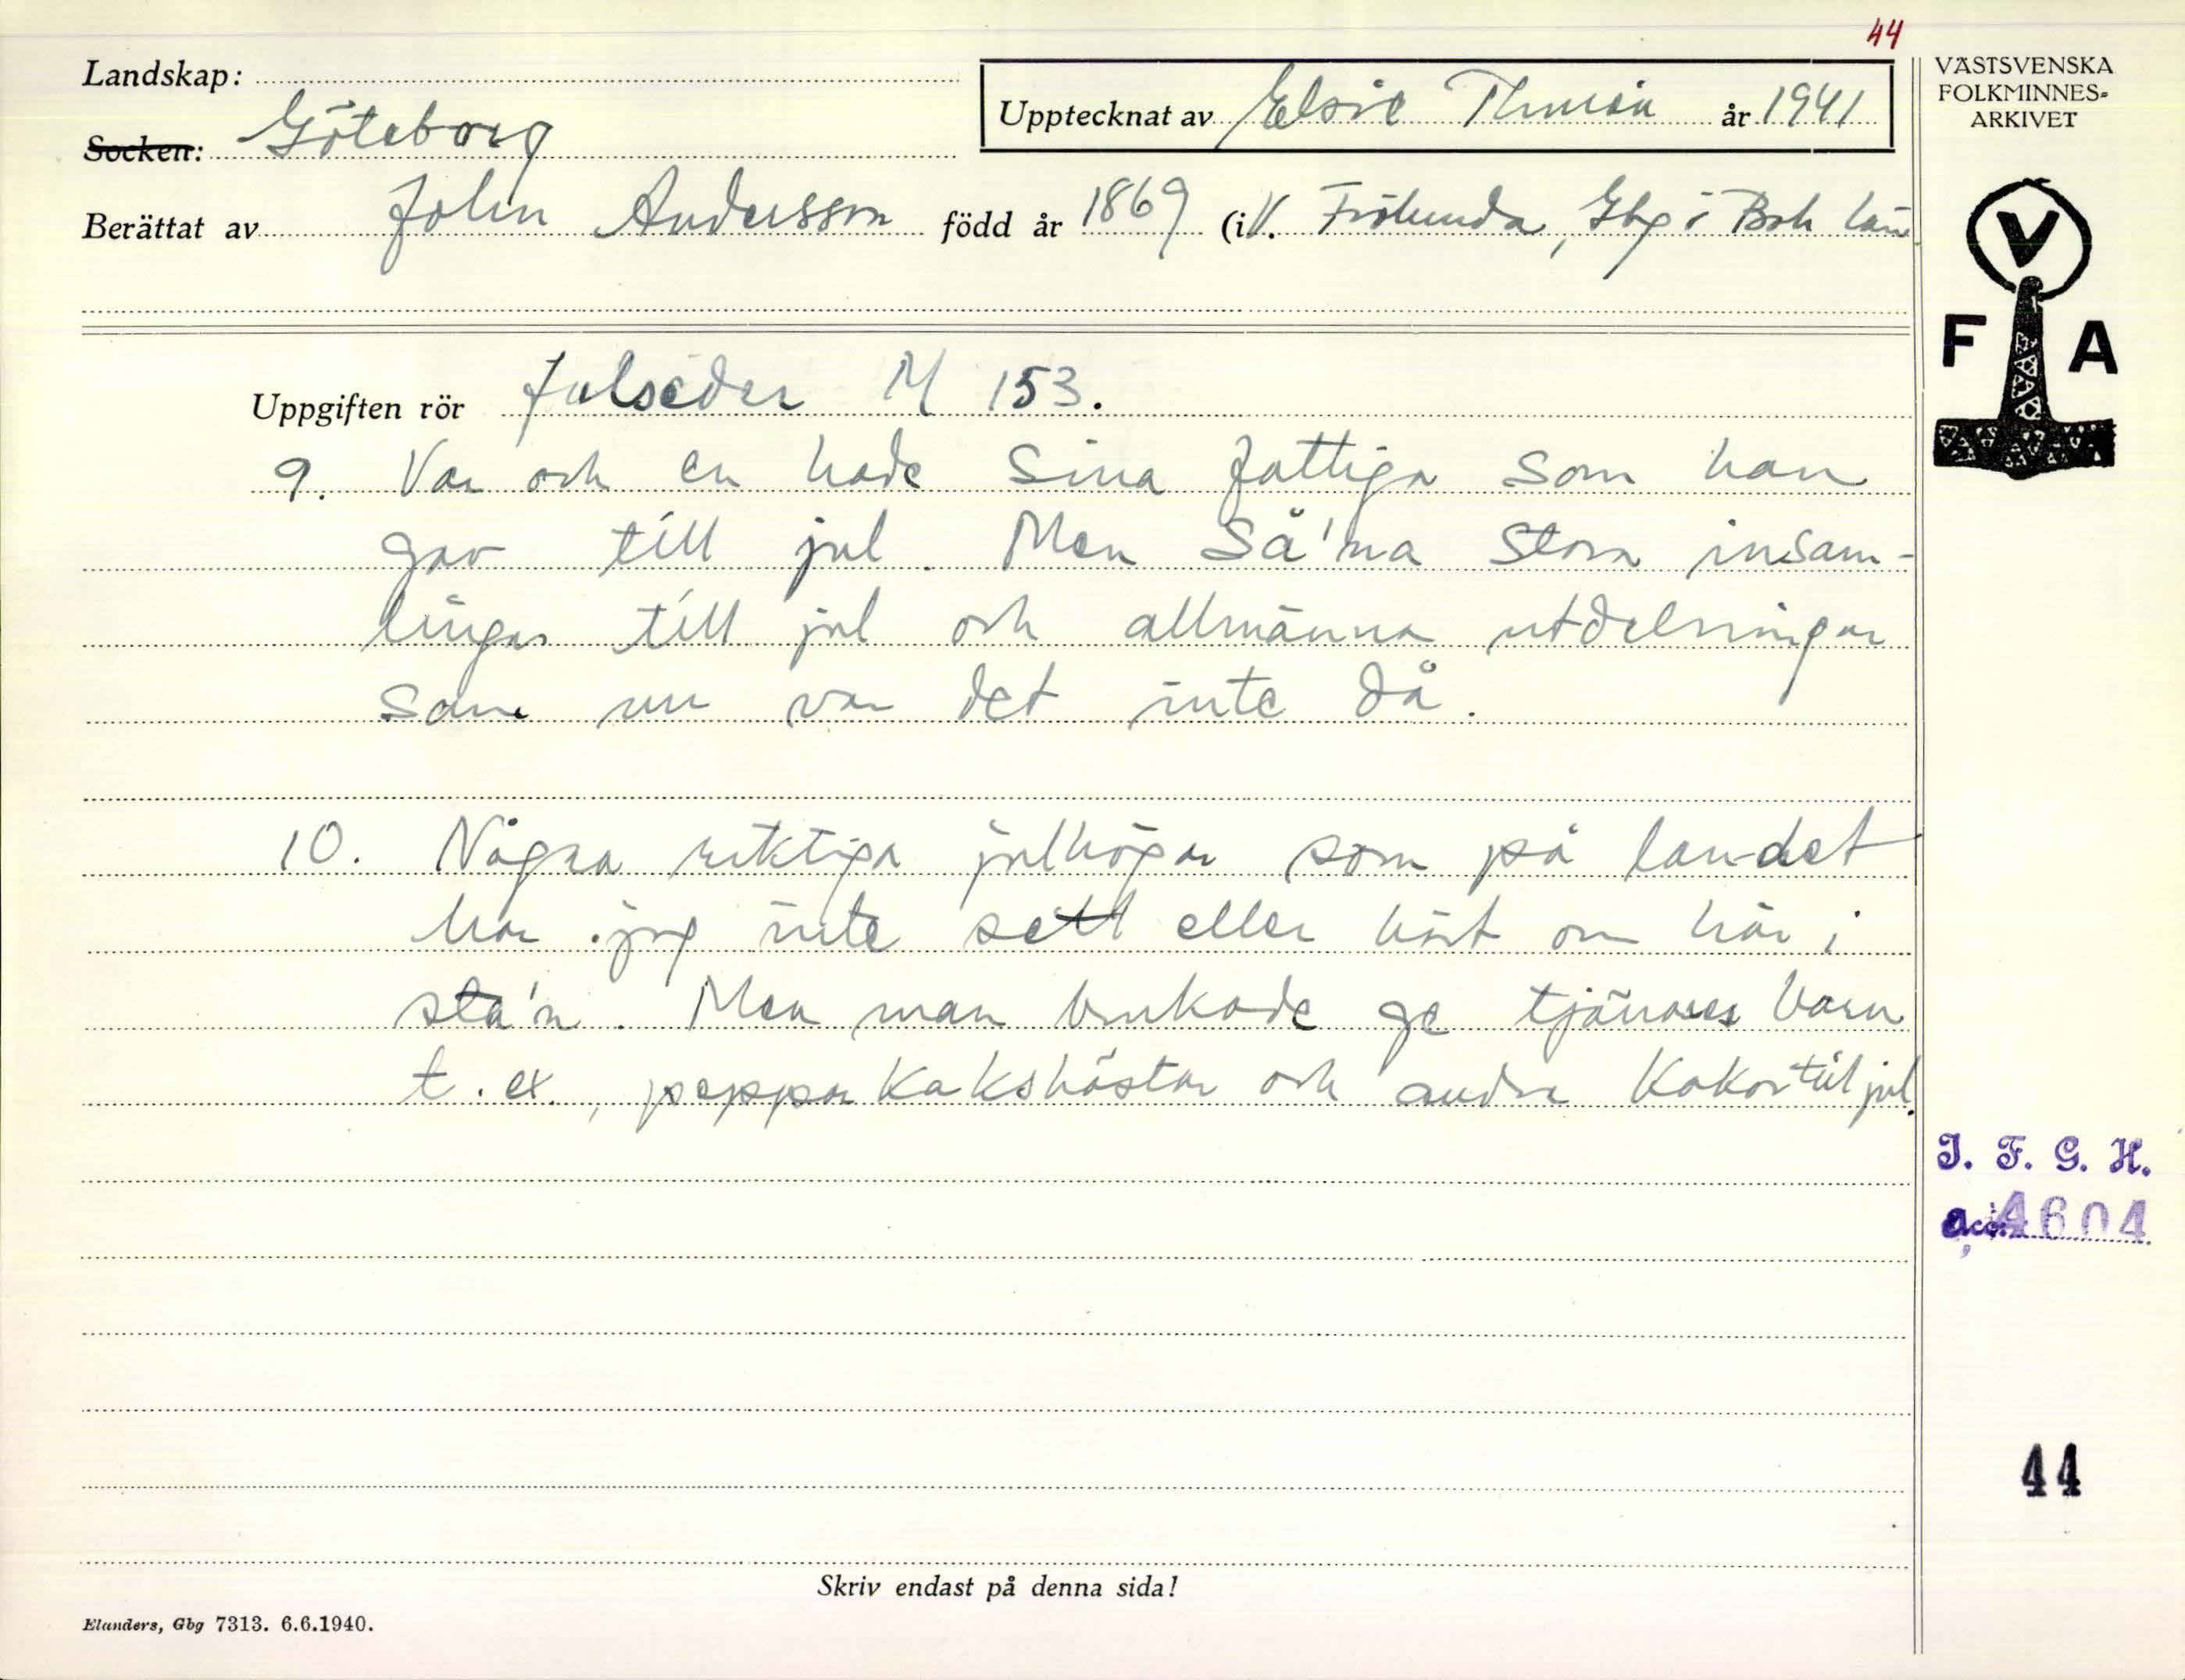 44
Landskap:
Socken: Göteborg
Upptecknat av Elsie Thunein år 1941
Berättat av John Andersson född år 1869 (i V. Frölunda, Gbg i Boh län
VÄSTSVENSKA
FOLKMINNES-
ARKIVET
V
F A
Uppgiften rör Julseder M 153.
9. Var och en hade sina fattiga som han
gav till jul. Men så'na stora insam-
lingar till jul och allmänna utdelningar
som nu var det inte då.
10. Några riktiga julhögar som på landet
har jag inte sett eller hört om här i
sta'n. Men man brukade ge tjänares barn
t.ex., pepparkakshästar och andra kakor till jul.
I. F. G. H.
acc. 4604
44
Skriv endast på denna sida!
Elanders, Gbg 7313. 6.6.1940.